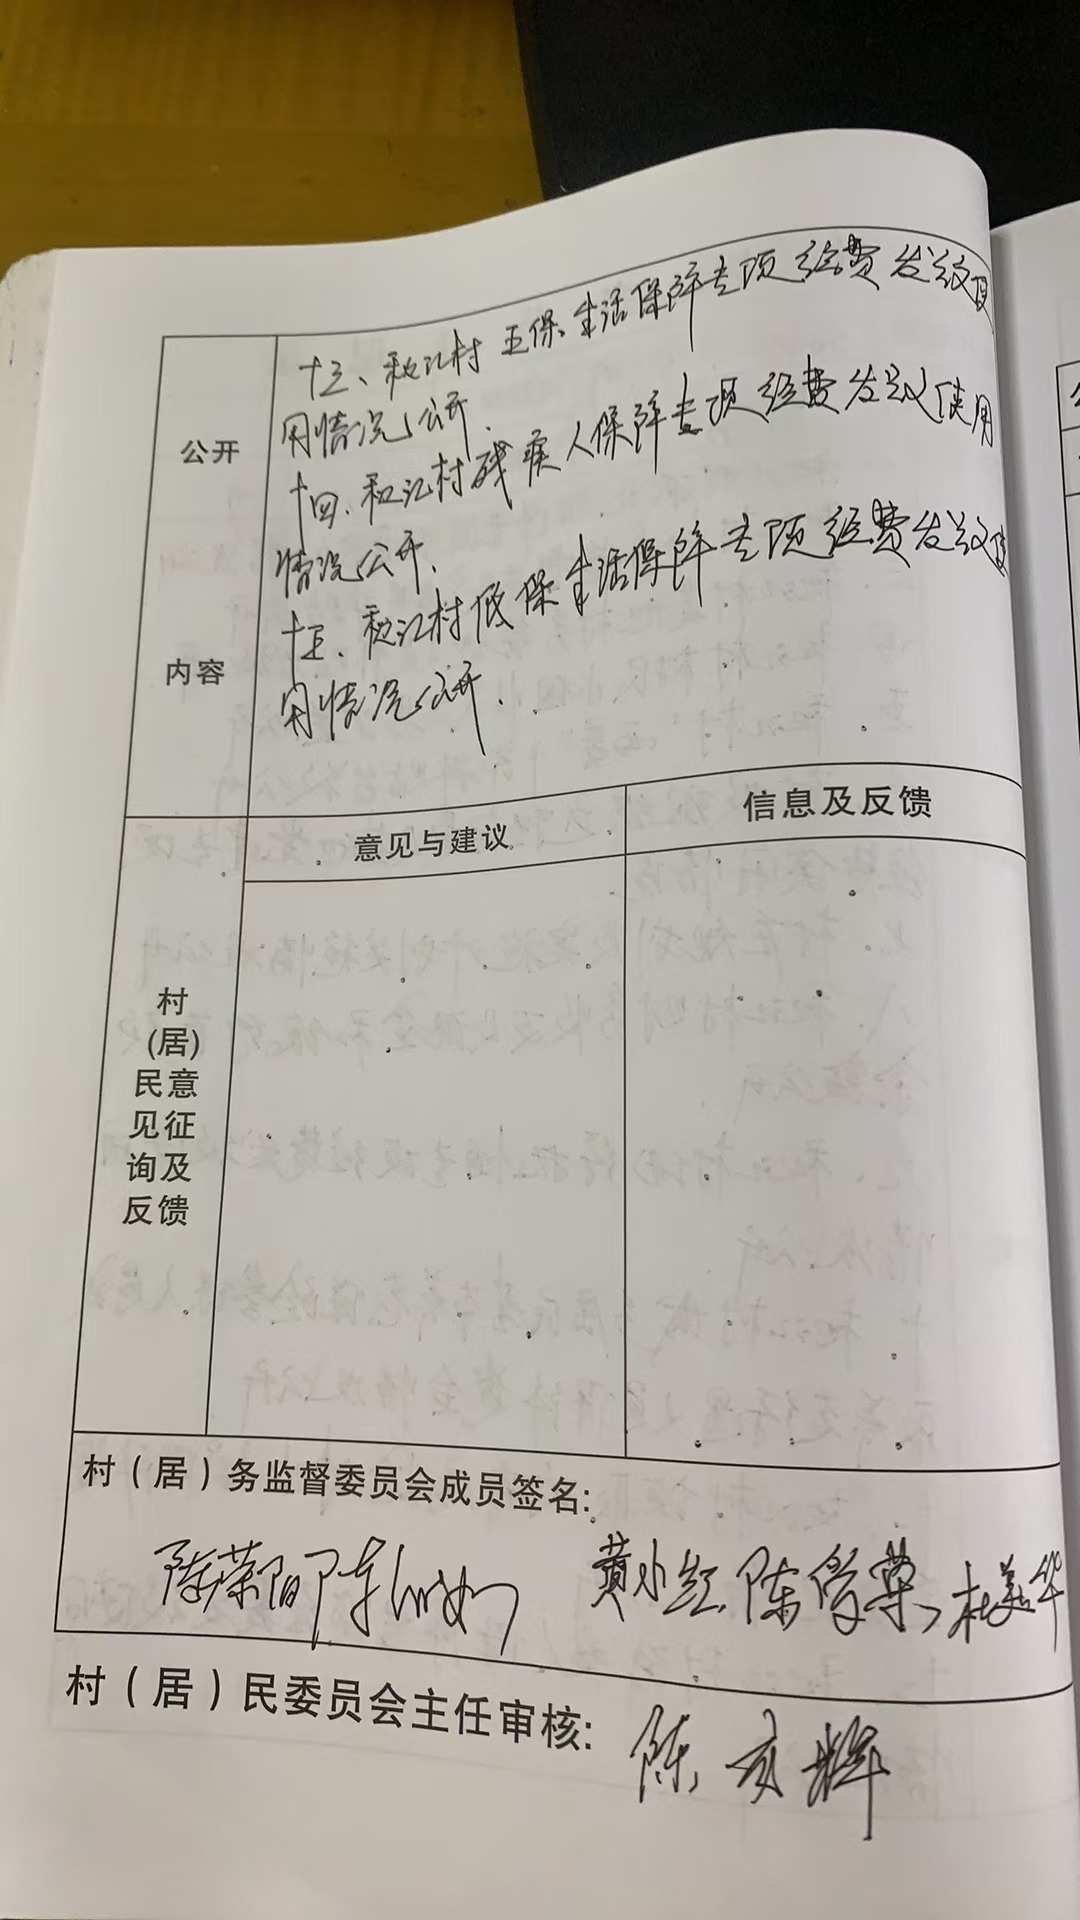 公开
内容
十三、和江村五保生活保障专项经费发放使
用情况公开.
十四、和江村残疾人保障专项经费发放使用
情况公开.
十五、和江村低保生活保障专项经费发放使
用情况公开.
意见与建议
信息及反馈
村
(居)
民意
见征
询及
反馈
村（居）务监督委员会成员签名:
陈荣阳 陈 黄小红 陈学荣 杜美华
村（居）民委员会主任审核:
陈 辉